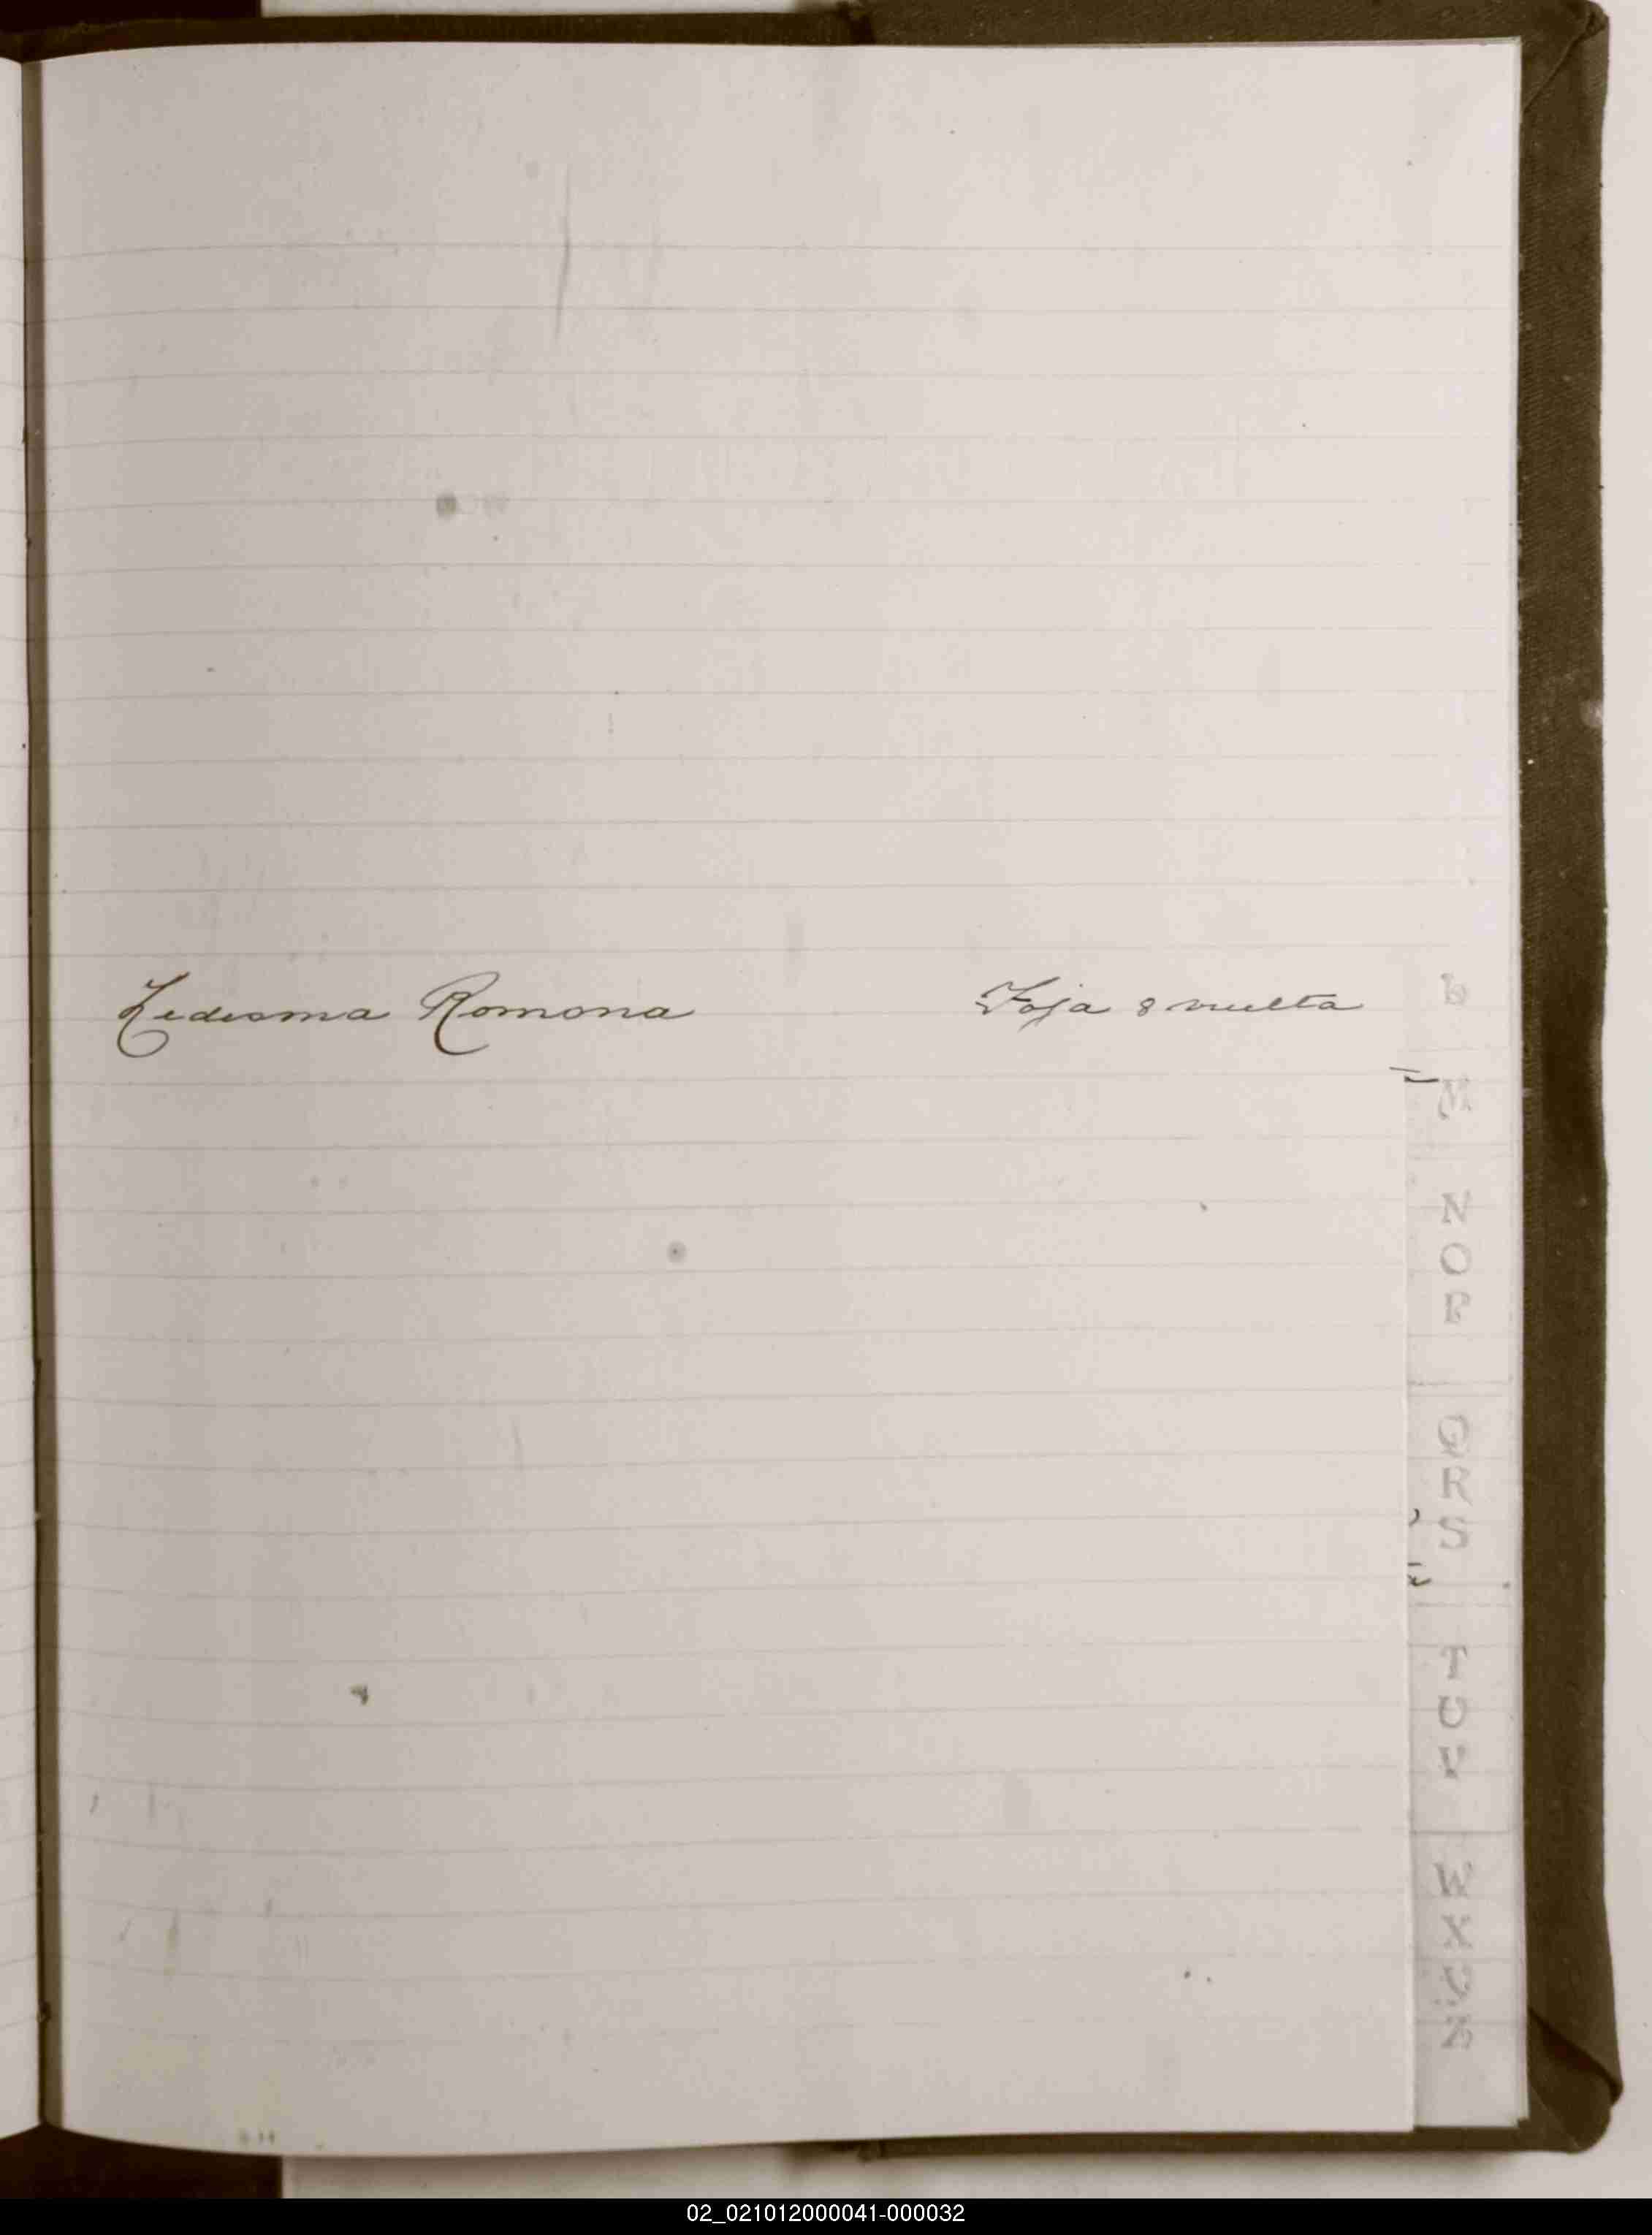 Ledesma Romona Foja 8 vuelta
L
M
N
O
P
Q
R
S
T
U
V
W
X
Y
Z
02_021012000041-000032